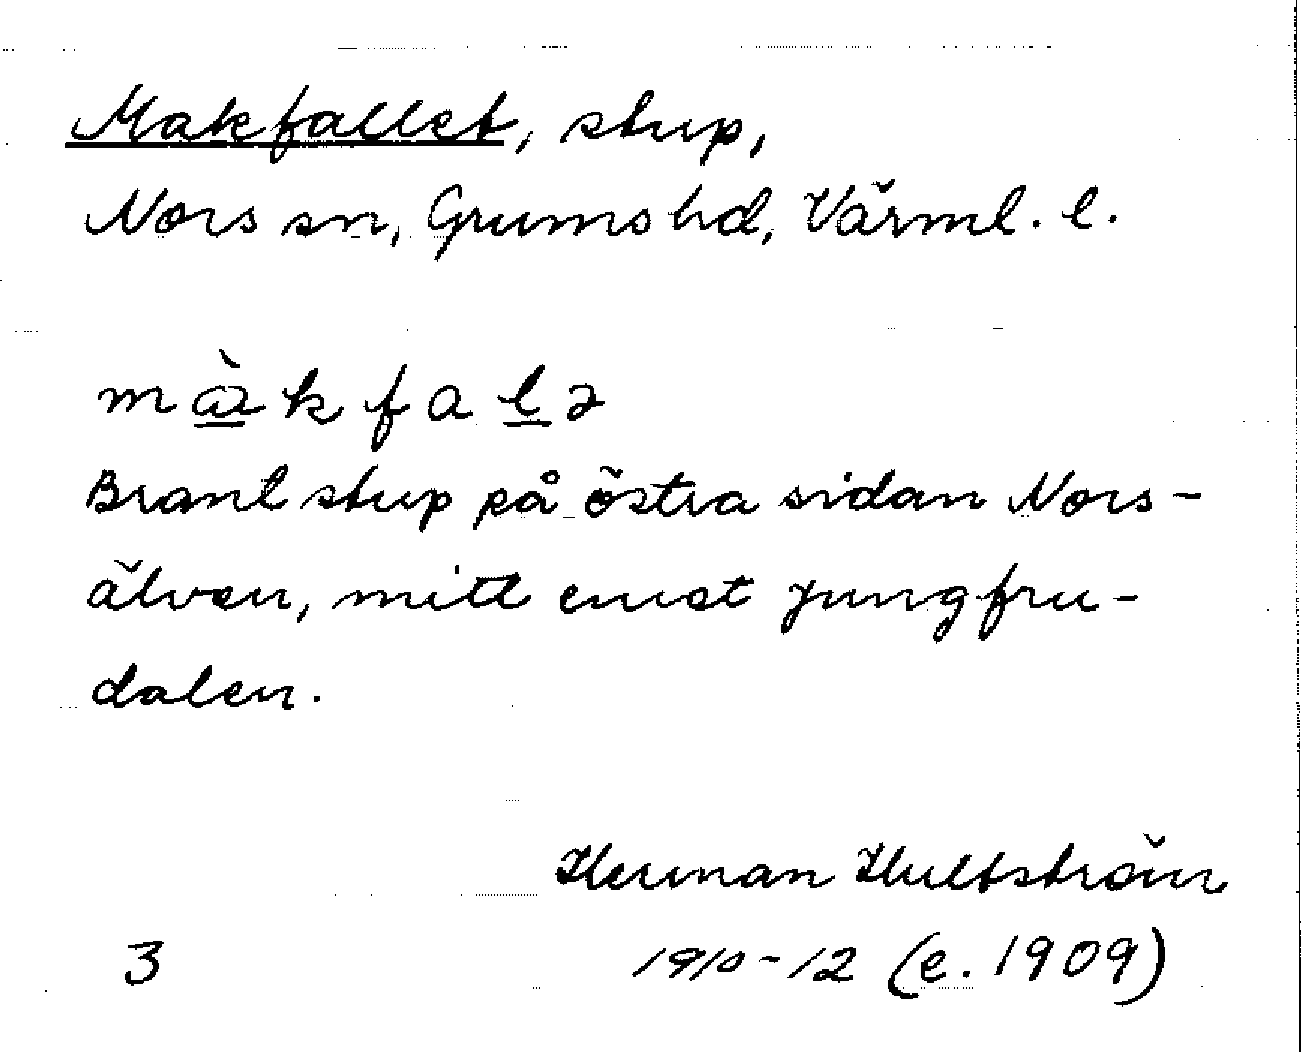 Makfallet, stup,
Nors sn, Grums hd, Värml. l.
màkfalə
Brant stup på östra sidan Nors-
älven, mitt emot Jungfru-
dalen.
Herman Hultström
3 1910-12 (e. 1909)